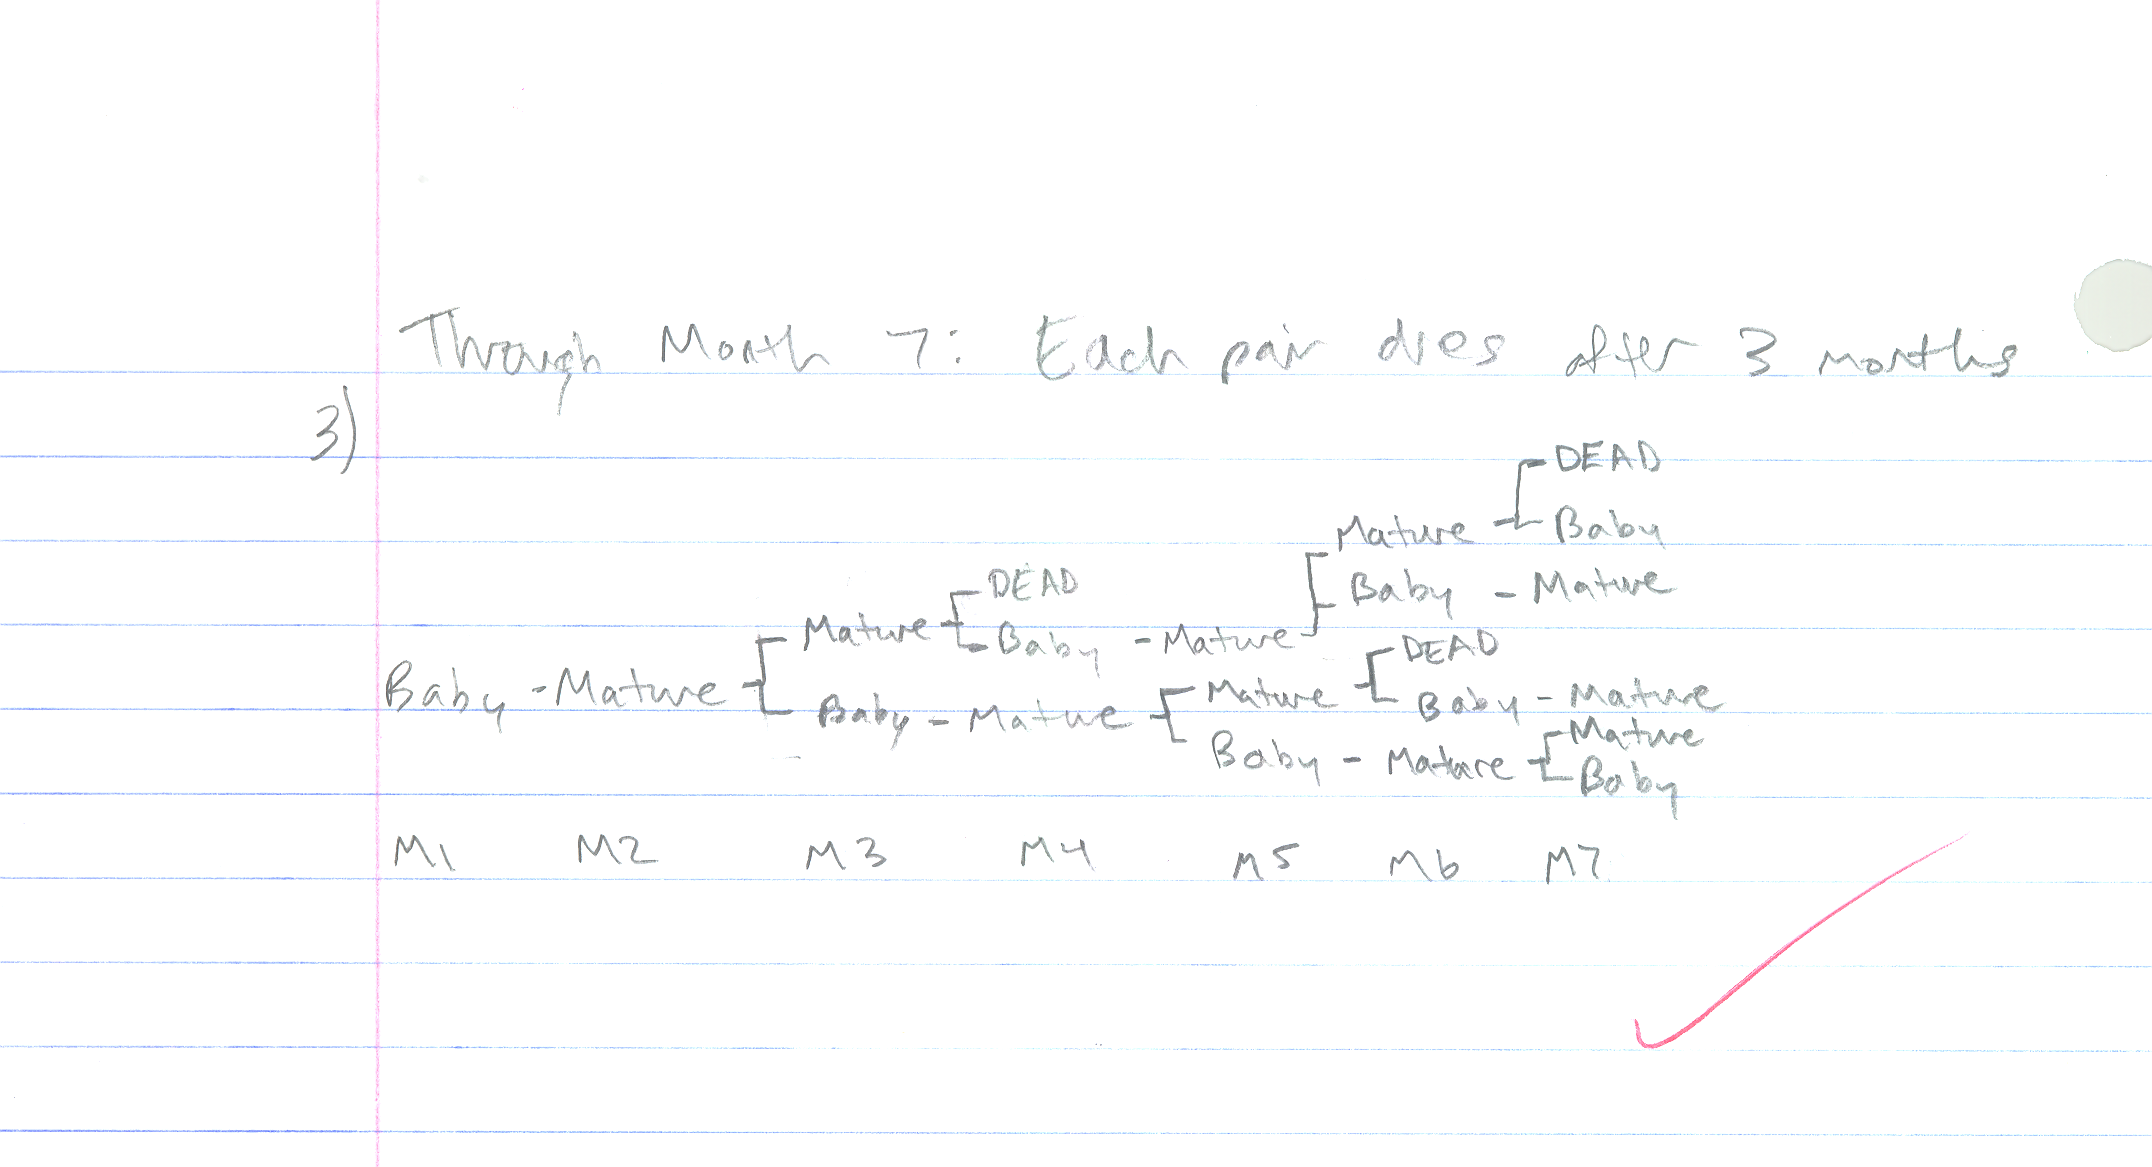 Through Month 7: Each pair dies after 3 months
3)
DEAD
Mature Baby
DEAD Baby - Mature
Mature Baby - Mature DEAD
Baby - Mature Mature Baby - Mature
Baby - Mature Mature
Baby - Mature Baby
M1 M2 M3 M4 M5 M6 M7